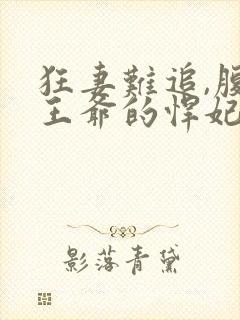 狂妻難追,腹
王爺的悍妃
影落青黛